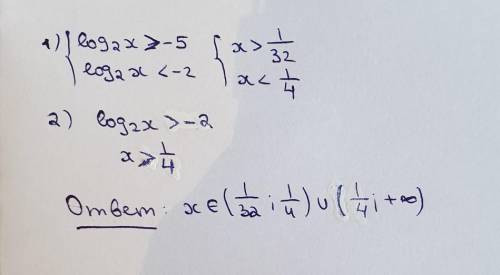 1) { log₂x > -5 { x > 1/32
log₂x < -2 x < 1/4
2) log₂x > -2
x > 1/4
Ответ: x ∈ (1/32 ; 1/4) ∪ (1/4 ; +∞)